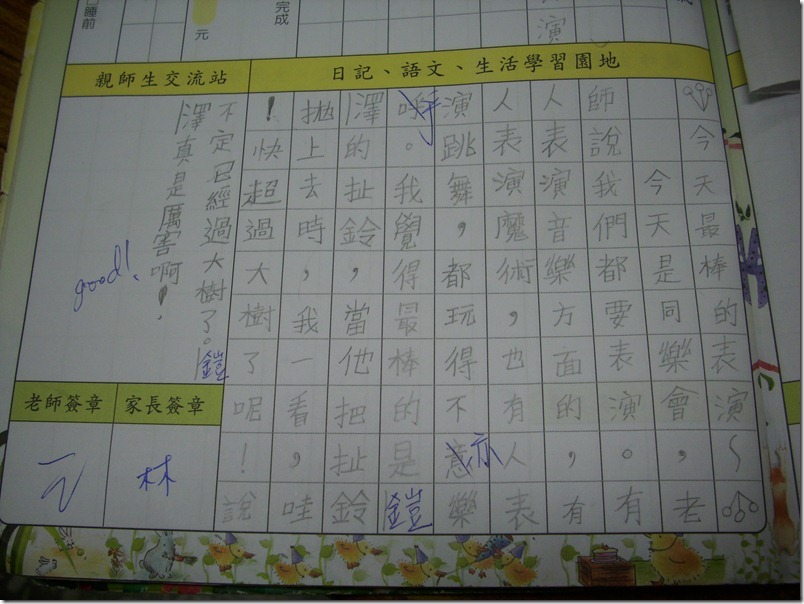 睡前
元
完成
演
日記、語文、生活學習園地
親師生交流站
今天最棒的表演～
今天是同樂會，老
師說我們都要表演。有
人表演音樂方面的，有
人表演魔術，也有人表
演跳舞，都玩得不意亦樂
呼乎。我覺得最棒的是鎧
澤的扯鈴，當他把扯鈴
拋上去時，我一看，哇
！快超過大樹了呢！說
不定已經過大樹了。鎧
澤真是厲害啊！
good!
家長簽章
林
老師簽章